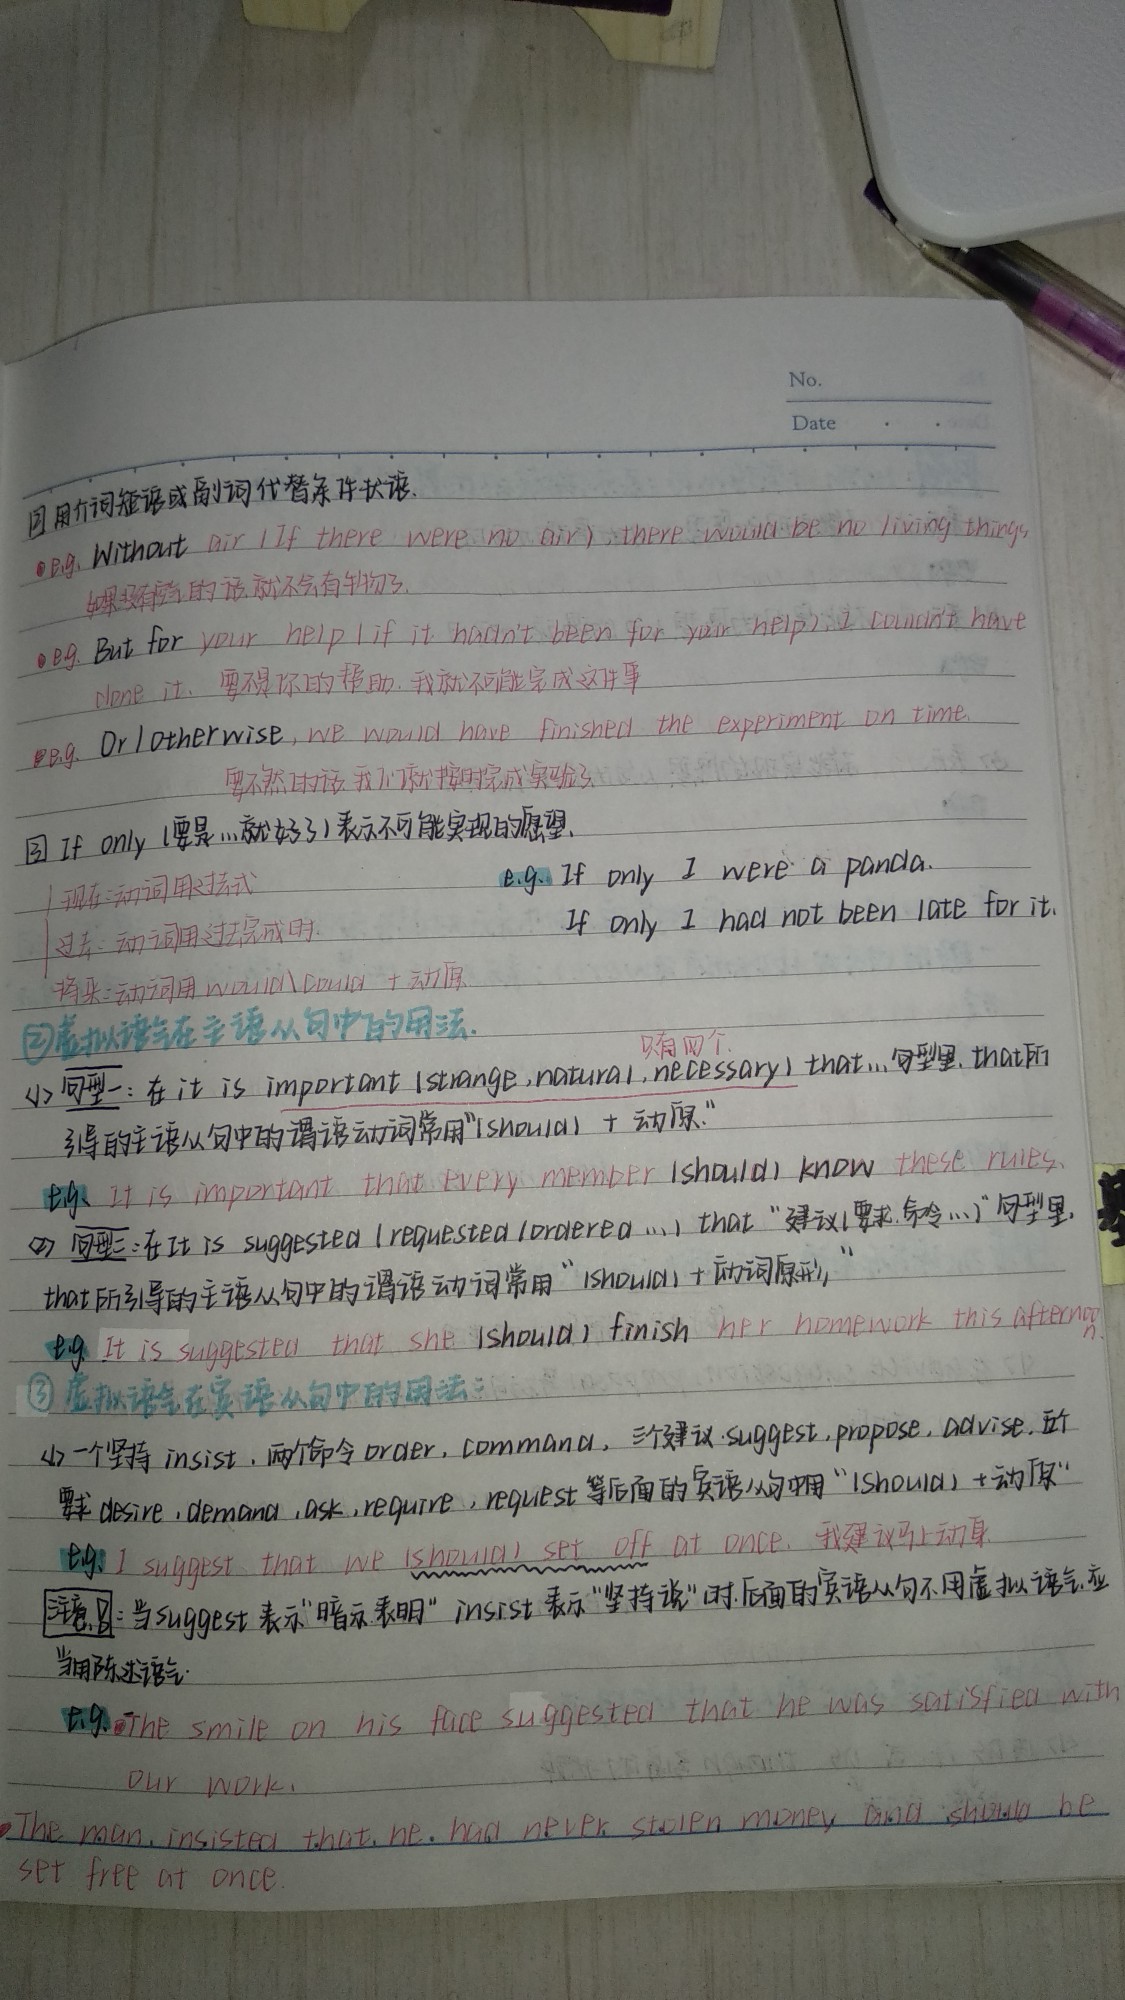 No.
Date
用介词短语或副词代替条件状语.
e.g. Without air (If there were no air), there would be no living things,
如果没有空气的话,就不会有生物了.
e.g. But for your help (if it hadn't been for your help), I couldn't have
done it. 要不是你的帮助,我就不可能完成这件事
e.g. Or/otherwise, we would have finished the experiment on time.
要不然的话,我们就按时完成实验了
If only (要是...就好了)表示不可能实现的愿望.
现在:动词用过去式
e.g. If only I were a panda.
过去:动词用过去完成时.
If only I had not been late for it.
将来:动词用would\could + 动原
②虚拟语气在主语从句中的用法.
只有四个.
<1> 句型一:在it is important (strange, natural, necessary) that...句型里,that所
引导的主语从句中的谓语动词常用"(should) + 动原."
e.g. It is important that every member (should) know these rules.
<2> 句型二:在It is suggested (requested/ordered...) that "建议(要求.命令...)"句型里,
that所引导的主语从句中的谓语动词常用"(should)+动词原形,"
e.g. It is suggested that she (should) finish her homework this afternoon.
③ 虚拟语气在宾语从句中的用法:
<1> 一个坚持 insist, 两个命令order, command, 三个建议suggest, propose, advise, 五个
要求desire, demand, ask, require, request等后面的宾语从句中用"(should) +动原"
e.g. I suggest that we (should) set off at once. 我建议马上动身
注意:当suggest表示"暗示.表明" insist表示"坚持说"时,后面的宾语从句不用虚拟语气,应
当用陈述语气.
e.g. The smile on his face suggested that he was satisfied with
our work.
The man insisted that he had never stolen money and should be
set free at once.